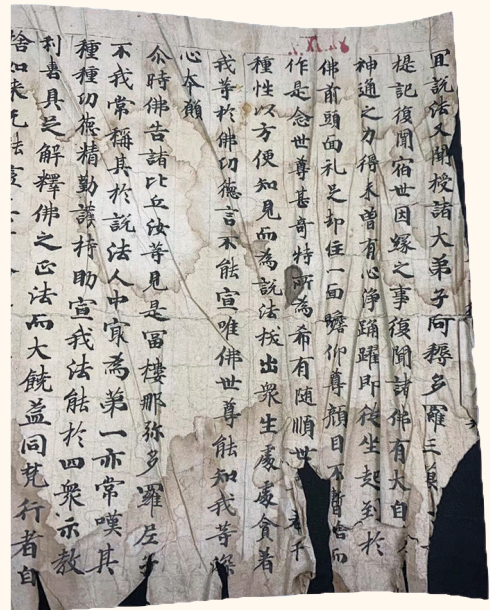 冝說法又聞授諸大弟子阿耨多羅三
提記復聞宿世因緣之事復聞諸佛有大自
神通之力得未曾有心淨踊躍即從坐起到於
佛前頭面礼足却住一面瞻仰尊顏目不暫捨而
作是念世尊甚奇特所為希有随順世若干
種性以方便知見而為說法拔出衆生處處貪著
我等於佛功德言不能宣唯佛世尊能知我等深
心本願
尒時佛告諸比丘汝等見是冨樓那弥多羅尼子
不我常稱其於說法人中冣為第一亦常嘆其
種種功德精勤護持助宣我法能於四衆示教
利喜具足解釋佛之正法而大饒益同梵行者自
捨如來无